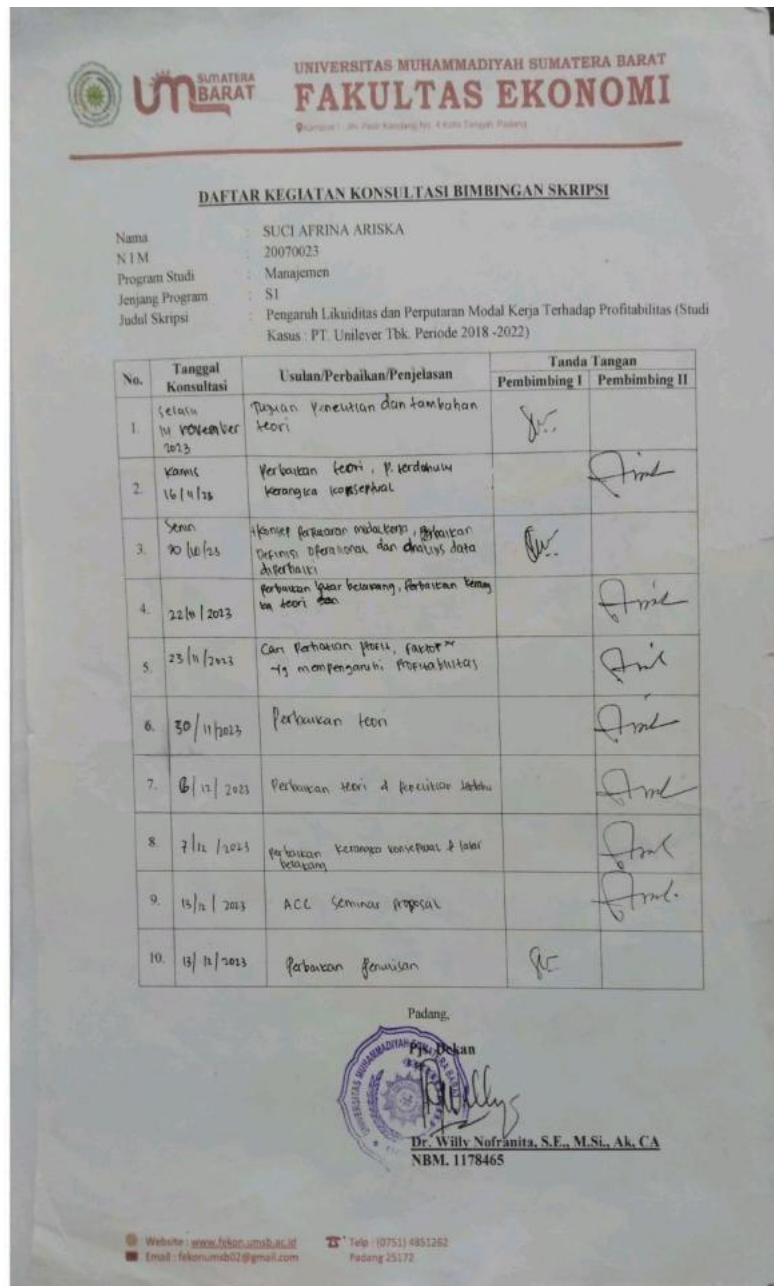 UM SUMATERA BARAT
UNIVERSITAS MUHAMMADIYAH SUMATERA BARAT
FAKULTAS EKONOMI
DAFTAR KEGIATAN KONSULTASI BIMBINGAN SKRIPSI
Nama : SUCI AFRINA ARISKA
N I M : 20070023
Program Studi : Manajemen
Jenjang Program : S1
Judul Skripsi : Pengaruh Likuiditas dan Perputaran Modal Kerja Terhadap Profitabilitas (Studi
Kasus : PT. Unilever Tbk. Periode 2018 -2022)
No. Tanggal Konsultasi Usulan/Perbaikan/Penjelasan Tanda Tangan
Pembimbing I Pembimbing II
1. Selasa 14 november 2023 Tujuan Penelitian dan tambahan
teori
2. Kamis 16/11/23 Perbaikan teori, P. terdahulu
kerangka konseptual
3. Senin Konsep Perputaran modal kerja, Perbaikan
Definisi Operasional dan analisis data
diperbaiki
4. 22/11/2023 Perbaikan latar belakang, Perbaikan
teori
5. 23/11/2023 Cari Perhatian Profit, Faktor
yg mempengaruhi Profitabilitas
6. 30/11/2023 Perbaikan teori
7. 6/12/2023 Perbaikan teori & Penelitian
8. 7/12/2023 Perbaikan kerangka konseptual & latar
belakang
9. 13/12/2023 ACC Seminar Proposal
10. 13/12/2023 Perbaikan Penulisan
Padang,
Pjs. Dekan
Dr. Willy Nofranita, S.E., M.Si., Ak, CA
NBM. 1178465
Website : www.fekon.umsb.ac.id Telp : (0751) 4851262
Email : fekonumsb02@gmail.com Padang 25172